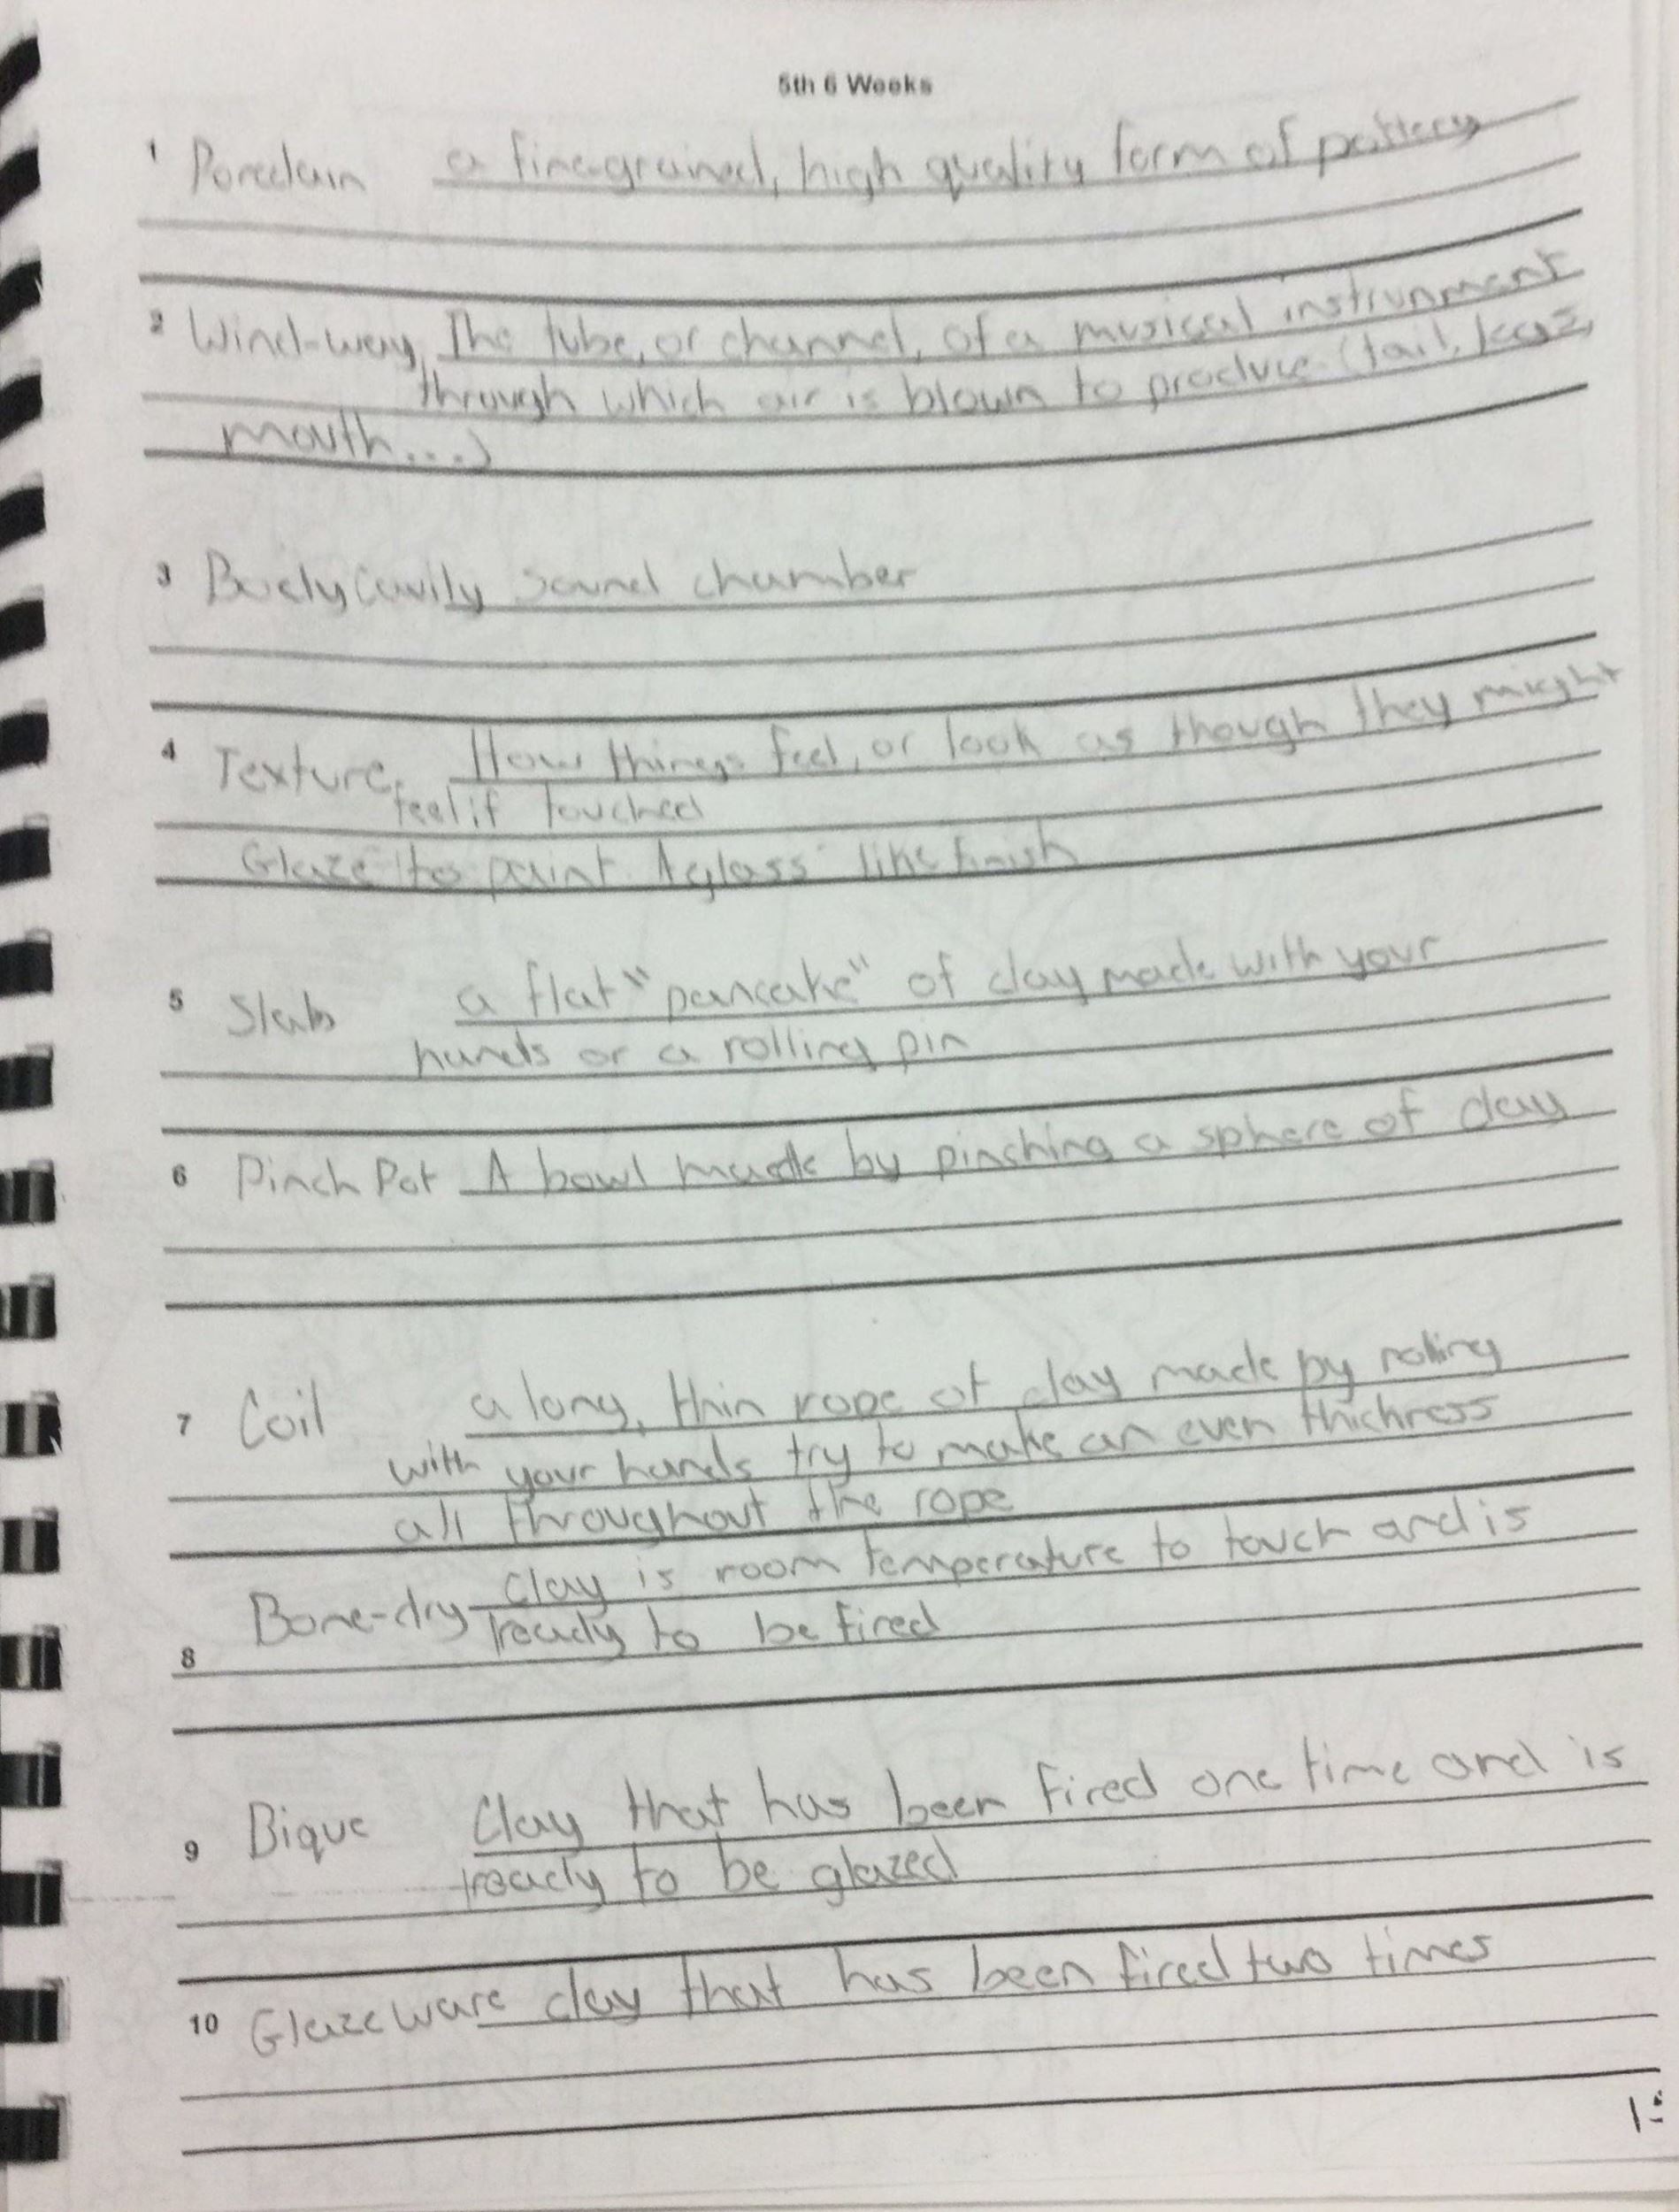 5th 6 Weeks
1 Porcelain a fine-grained, high quality form of pottery
2 Wind-way The tube, or channel, of a musical instrunment
through which air is blown to produce (tail, legs,
mouth....)
3 Body Cavity Sound chamber
4 Texture How things feel, or look as though they might
feel if touched
Glaze to paint A glass like finish
5 Slab a flat "pancake" of clay made with your
hands or a rolling pin
6 Pinch Pot A bowl made by pinching a sphere of clay
7 Coil a long, thin rope of clay made by rolling
with your hands try to make an even thickness
all throughout the rope
8 Bone-dry clay is room temperature to touch and is
ready to be fired
9 Bique Clay that has been fired one time and is
ready to be glazed
10 Glazeware clay that has been fired two times